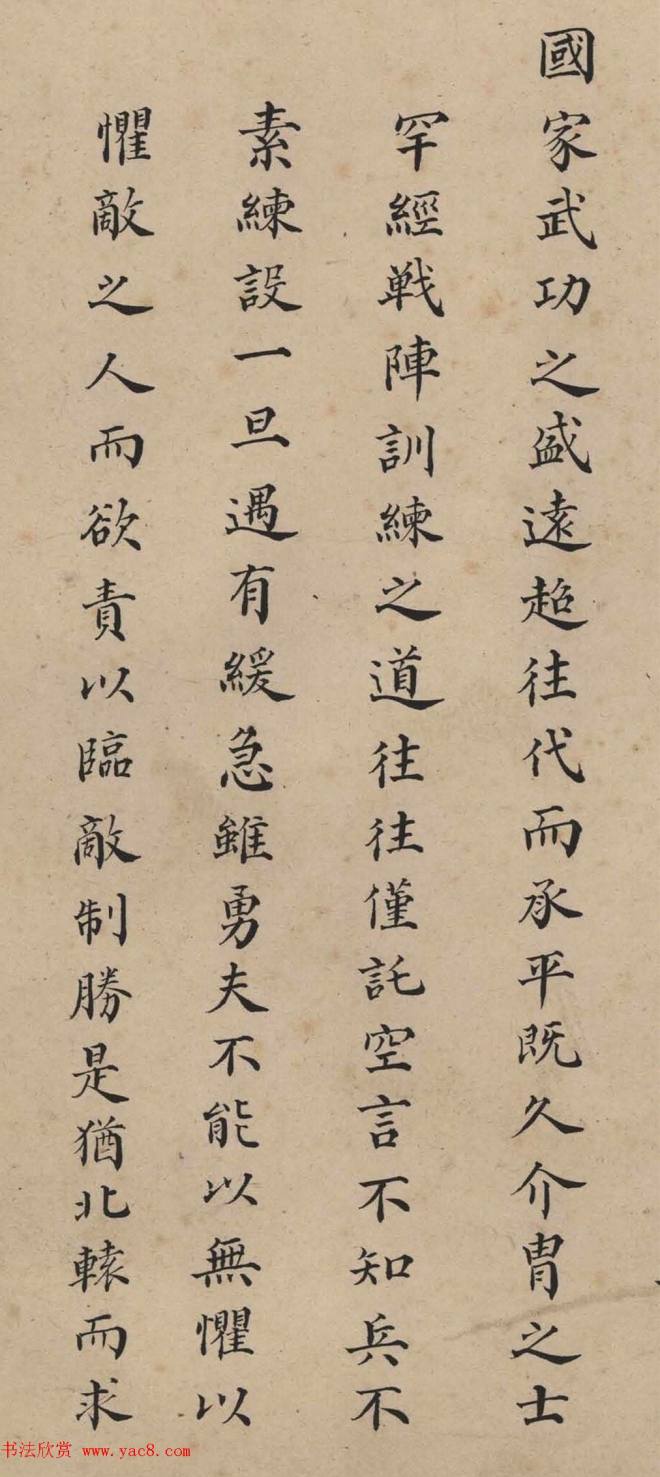 國家武功之盛遠超往代而承平既久介冑之士
罕經戰陣訓練之道往往僅託空言不知兵不
素練設一旦遇有緩急雖勇夫不能以無懼以
懼敵之人而欲責以臨敵制勝是猶北轅而求
书法欣赏 www.yac8.com